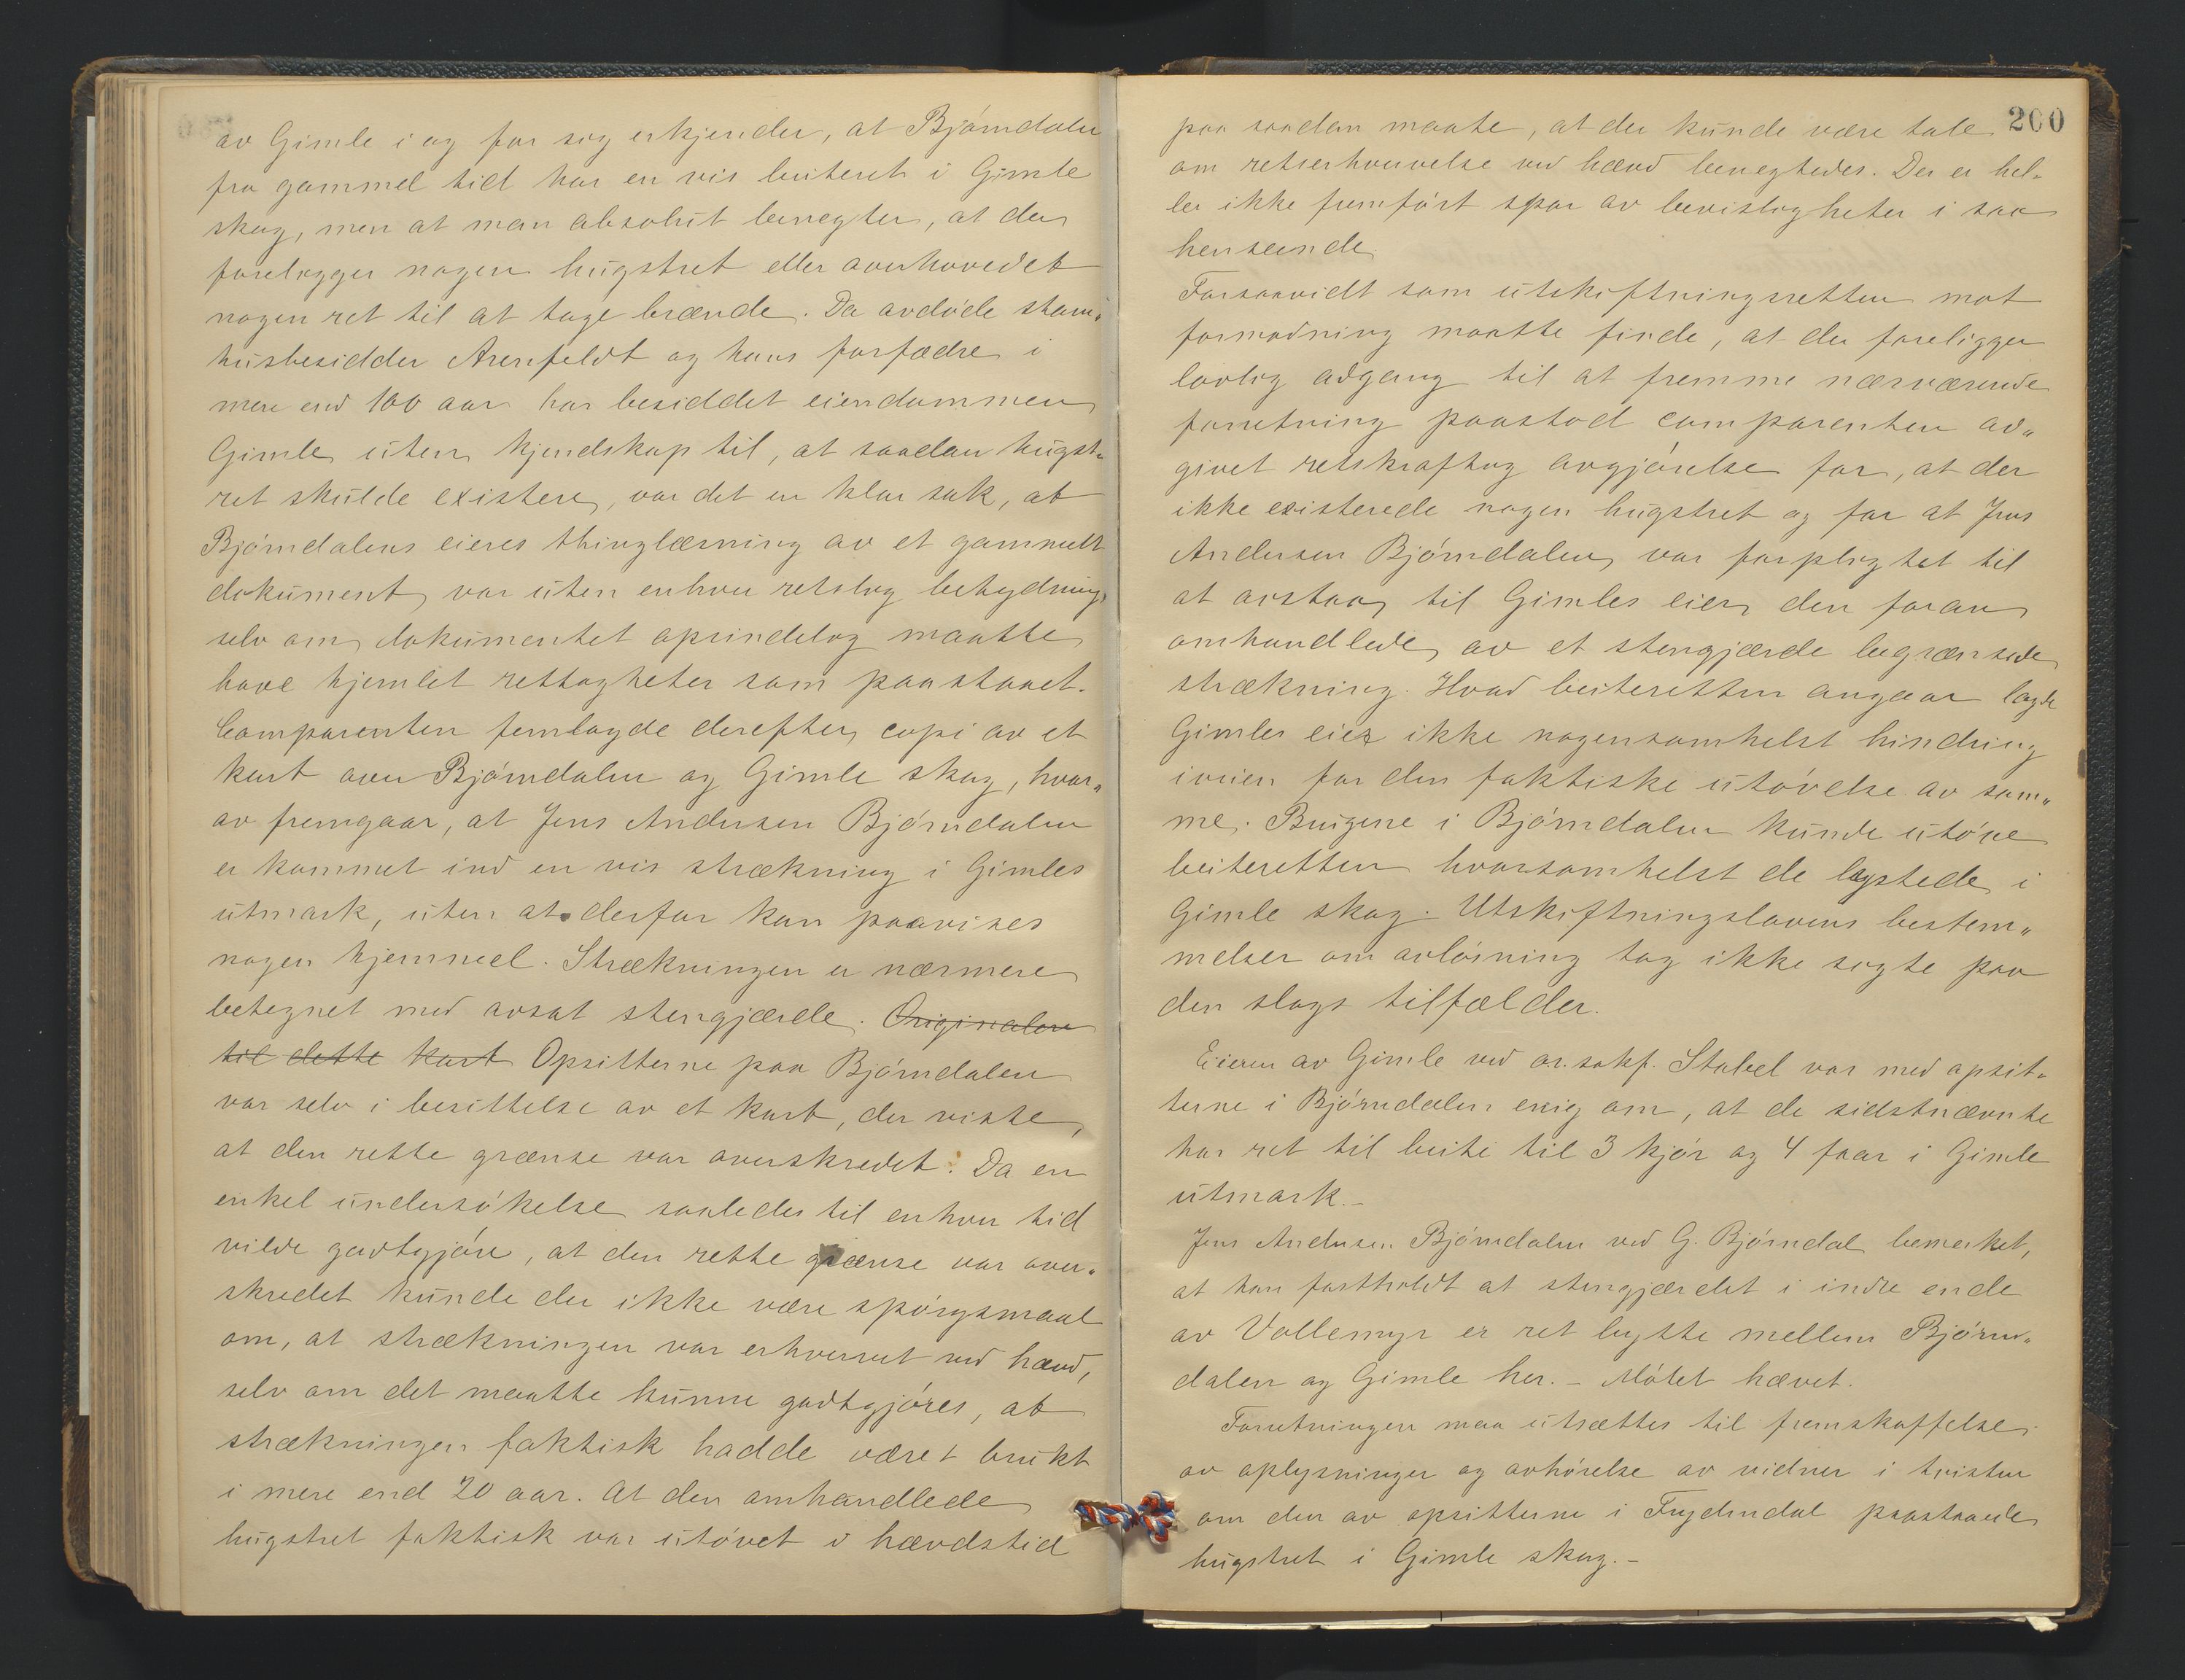 av Gimle i og for sig erkjender, at Bjørndalen
fra gammel tid har en vis beiteret i Gimle
skog, men at man absolut benegter, at der
foreligger nogen hugstret eller overhovedet
nogen ret til at tage brænde. Da avdøde stam-
husbesidder Arenfeldt og hans forfædre i
mere end 100 aar har besiddet eiendommen
Gimle uten kjendskap til, at saadan hugst-
ret skulde existere, var det en klar sak, at
Bjørndalens eieres thinglæsning av et gammelt
dokument var uten enhver retslig betydning,
selv om dokumentet oprindelig maatte
have hjemlet rettigheter som paastaaet.
Comparenten fremlagde derefter copi av et
kart over Bjørndalen og Gimle skog, hvor-
av fremgaar, at Jens Andersen Bjørndalen
er kommet ind en vis strækning i Gimles
utmark, uten at derfor kan paavises
nogen hjemmel. Strækningen er nærmere
betegnet med avsat stengjærde. Originalen
til dette kart Opsitterne paa Bjørndalen
var selv i besittelse av et kart, der viste,
at den rette grænse var overskredet. Da en
enkel undersøkelse saaledes til enhver tid
vilde godtgjøre, at den rette grænse var over-
skredet kunde der ikke være spørgsmaal
om, at strækningen var erhvervet ved hævd,
selv om det maatte kunne godtgjøres, at
strækningen faktisk hadde været brukt
i mere end 20 aar. At den omhandlede
hugstret faktisk var utøvet i hævdstid
200
paa saadan maate, at der kunde være tale
om retserhvervelse ved hævd benegtedes. Der er hel-
ler ikke fremført spor av bevisligheter i saa
henseende.
Forsaavidt som utskiftningsretten mot
formodning maatte finde, at der foreligger
lovlig adgang til at fremme nærværende
forretning paastod comparenten av-
givet retskraftig avgjørelse for, at der
ikke existerede nogen hugstret og for at Jens
Andersen Bjørndalen var forpligtet til
at avstaa til Gimles eier den foran
omhandlede, av et stengjærde begrænsede
strækning. Hvad beiteretten angaar lagde
Gimles eier ikke nogensomhelst hindring
iveien for den faktiske utøvelse av sam-
me. Brugene i Bjørndalen kunde utøve
beiteretten hvorsomhelst de lystede i
Gimle skog. Utskiftningslovens bestem-
melser om avløsning tog ikke sigte paa
den slags tilfælder.
Eieren av Gimle ved o.r.sakf. Stabel var med opsit-
terne i Bjørndalen enig om, at de sidstnævnte
har ret til beite til 3 kjør og 4 faar i Gimle
utmark.-
Jens Andersen Bjørndalen ved G. Bjørndal bemerket,
at han fastholdt at stengjærdet i indre ende
av Vollemyr er ret bytte mellem Bjørn-
dalen og Gimle her. - Møtet hævet.
Forretningen maa utsættes til fremskaffelse
av oplysninger og avhørelse av vidner i tvisten
om den av opsitterne i Fugdendal paastaaede
hugstret i Gimle skog.-